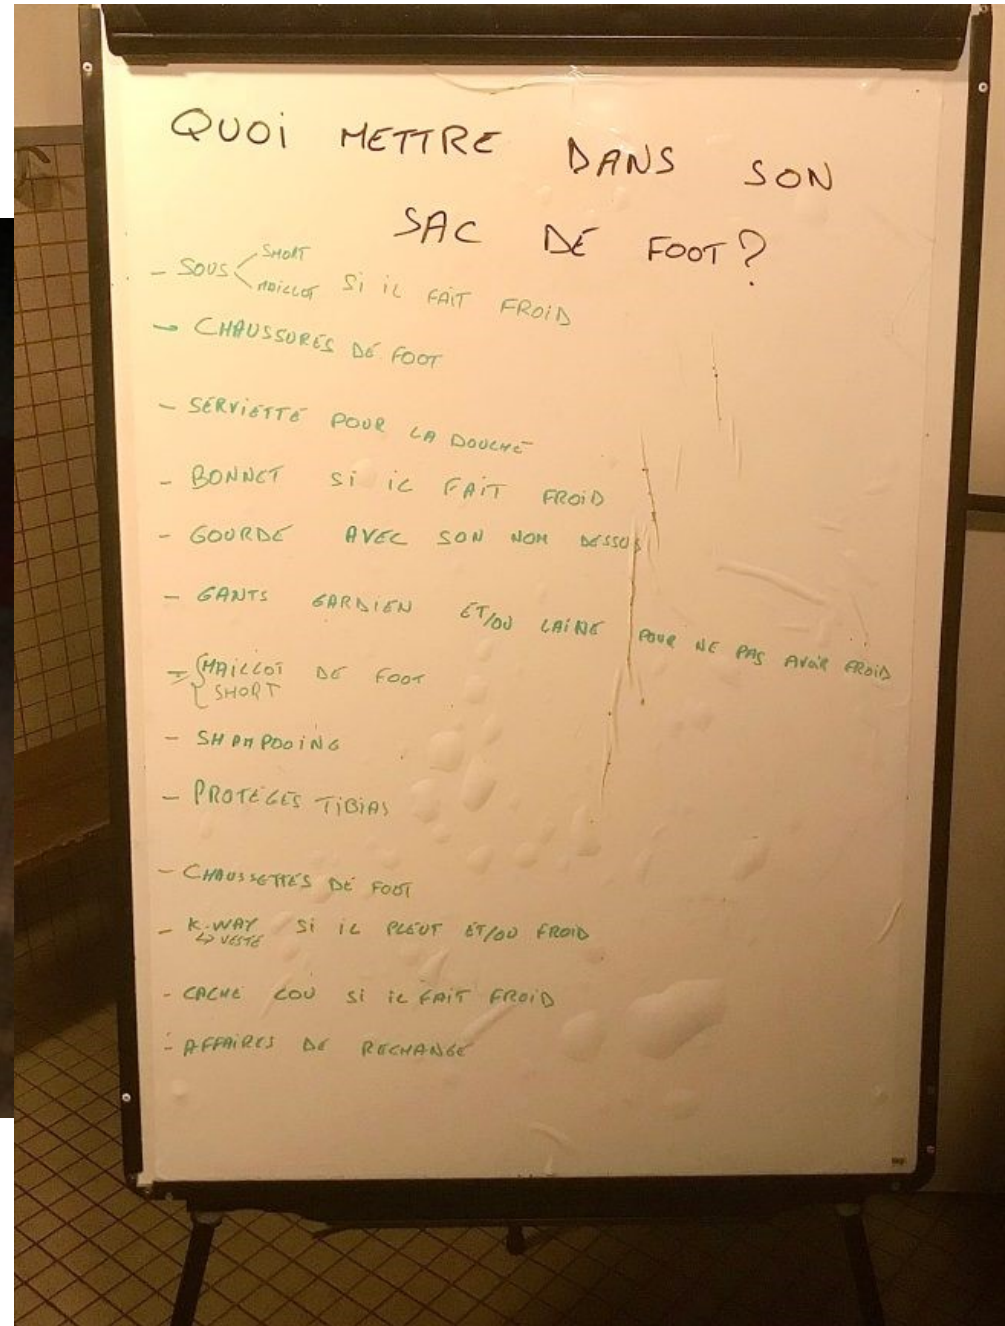 QUOI METTRE DANS SON
SAC DE FOOT?
- SOUS < SHORT MAILLOT SI IL FAIT FROID
- CHAUSSURES DE FOOT
- SERVIETTE POUR LA DOUCHE
- BONNET SI IL FAIT FROID
- GOURDE AVEC SON NOM DESSUS
- GANTS GARDIEN ET/OU LAINE POUR NE PAS AVOIR FROID
- { MAILLOT DE FOOT
SHORT
- SHAMPOOING
- PROTEGES TIBIAS
- CHAUSSETTES DE FOOT
- K-WAY SI IL PLEUT ET/OU FROID
↳ VESTE
- CACHE COU SI IL FAIT FROID
- AFFAIRES DE RECHANGE